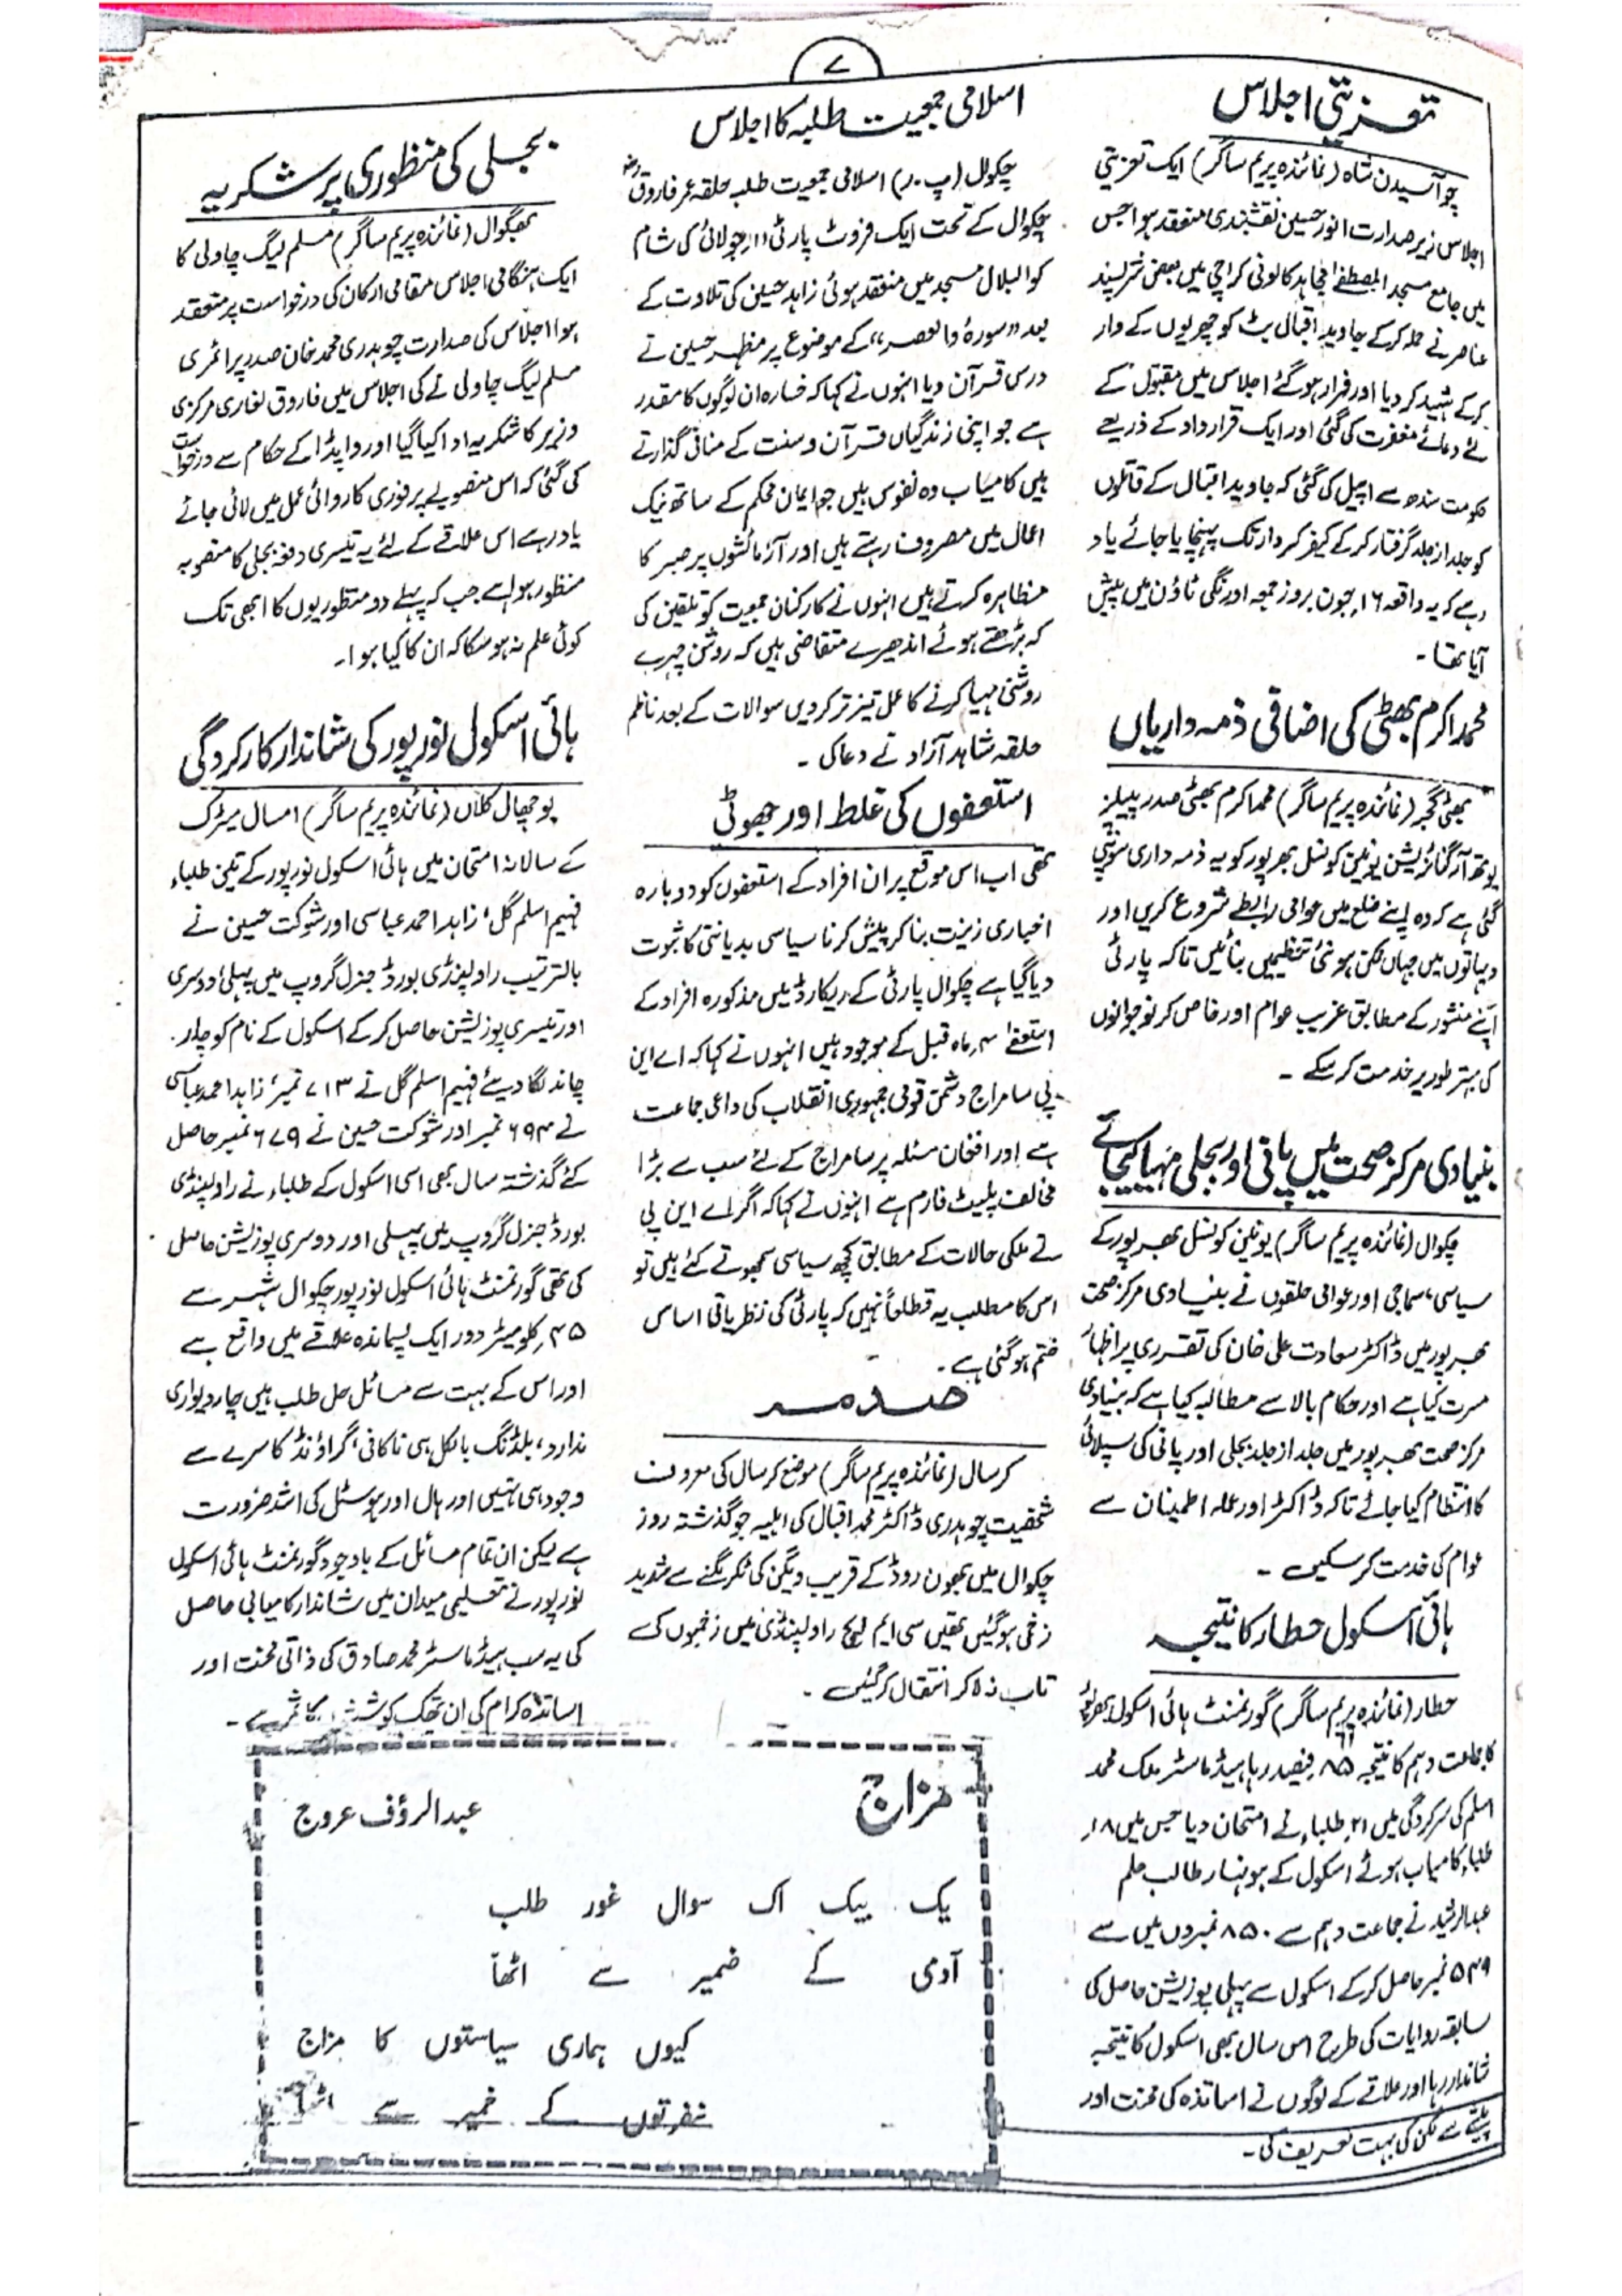 ۷
تعزیتی اجلاس
چوآسیدن شاہ (نمائندہ پریم ساگر) ایک تعزیتی
اجلاس زیر صدارت انور حسین نقشبندی منعقد ہوا جس
میں جامع مسجد المصطفےٰ مجاہد کالونی کراچی میں بعض شرپسند
عناصر نے حملہ کر کے جاوید اقبال بٹ کو چھریوں کے وار
کر کے شہید کر دیا اور فرار ہو گئے اجلاس میں مقبول کے
لئے دعائے مغفرت کی گئی اور ایک قرارداد کے ذریعے
حکومت سندھ سے اپیل کی گئی کہ جاوید اقبال کے قاتلوں
کو جلد از جلد گرفتار کر کے کیفر کردار تک پہنچایا جائے یاد
رہے کہ یہ واقعہ ۱۶ جون بروز جمعہ اورنگی ٹاؤن میں پیش
آیا تھا۔
محمد اکرم بھٹی کی اضافی ذمہ داریاں
بھٹی گجر (نمائندہ پریم ساگر) محمد اکرم بھٹی صدر پیپلز
یوتھ آرگنائزیشن یونین کونسل بھرپور کو یہ ذمہ داری سونپی
گئی ہے کہ وہ اپنے ضلع میں عوامی رابطے شروع کریں اور
دیہاتوں میں جہاں ممکن ہو نئی تنظیمیں بنائیں تاکہ پارٹی
اپنے منشور کے مطابق غریب عوام اور خاص کر نوجوانوں
کی بہتر طور پر خدمت کر سکے۔
بنیادی مرکز صحت میں پانی اور بجلی مہیا کیجائے
چکوال (نمائندہ پریم ساگر) یونین کونسل بھرپور کے
سیاسی، سماجی اور عوامی حلقوں نے بنیادی مرکز صحت
بھرپور میں ڈاکٹر سعادت علی خان کی تقرری پر اظہار
مسرت کیا ہے اور حکام بالا سے مطالبہ کیا ہے کہ بنیادی
مرکز صحت بھرپور میں جلد از جلد بجلی اور پانی کی سپلائی
کا انتظام کیا جائے تاکہ ڈاکٹر اور عملہ اطمینان سے
عوام کی خدمت کر سکیں۔
ہائی اسکول حطار کا نتیجہ
حطار (نمائندہ پریم ساگر) گورنمنٹ ہائی اسکول
کا جماعت دہم کا نتیجہ ۸۵ فیصد رہا ہیڈ ماسٹر ملک محمد
اسلم کی سرکردگی میں ۲۱ طلباء نے امتحان دیا جس میں ۱۸
طلباء کامیاب ہوئے اسکول کے ہونہار طالب علم
عبدالرشید نے جماعت دہم سے ۸۵۰ نمبروں میں سے
۵۴۹ نمبر حاصل کر کے اسکول سے پہلی پوزیشن حاصل کی
سابقہ روایات کی طرح اس سال بھی اسکول کا نتیجہ
شاندار رہا اور علاقے کے لوگوں نے اساتذہ کی محنت اور
پیشے سے لگن کی بہت تعریف کی۔
اسلامی جمعیت طلبہ کا اجلاس
چکوال (پ۔ر) اسلامی جمعیت طلبہ حلقہ عمر فاروقؓ
چکوال کے تحت ایک فروٹ پارٹی ۱۱ جولائی کی شام
کو البلال مسجد میں منعقد ہوئی زاہد حسین کی تلاوت کے
بعد "سورۂ والعصر" کے موضوع پر مظہر حسین نے
درس قرآن دیا انہوں نے کہا کہ خسارہ ان لوگوں کا مقدر
ہے جو اپنی زندگیاں قرآن و سنت کے منافی گذارتے
ہیں کامیاب وہ نفوس ہیں جو ایمان محکم کے ساتھ نیک
اعمال میں مصروف رہتے ہیں اور آزمائشوں پر صبر کا
مظاہرہ کرتے ہیں انہوں نے کارکنان جمعیت کو تلقین کی
کہ بڑھتے ہوئے اندھیرے متقاضی ہیں کہ روشن چہرے
روشنی مہیا کرنے کا عمل تیز تر کر دیں سوالات کے بعد ناظم
حلقہ شاہد آزاد نے دعا کی۔
استعفوں کی غلط اور جھوٹی
تھی اب اس موقع پر ان افراد کے استعفوں کو دوبارہ
اخباری زینت بنا کر پیش کرنا سیاسی بددیانتی کا ثبوت
دیا گیا ہے چکوال پارٹی کے ریکارڈ میں مذکورہ افراد کے
استعفے ۴ ماہ قبل کے موجود ہیں انہوں نے کہا کہ اے این
پی سامراج دشمن قومی جمہوری انقلاب کی داعی جماعت
ہے اور افغان مسئلہ پر سامراج کے لئے سب سے بڑا
مخالف پلیٹ فارم ہے انہوں نے کہا کہ اگر اے این پی
نے ملکی حالات کے مطابق کچھ سیاسی سمجھوتے کئے ہیں تو
اس کا مطلب یہ قطعاً نہیں کہ پارٹی کی نظریاتی اساس
ختم ہو گئی ہے۔
صدمہ
کرسال (نمائندہ پریم ساگر) موضع کرسال کی معروف
شخصیت چوہدری ڈاکٹر محمد اقبال کی اہلیہ جو گذشتہ روز
چکوال میں بھون روڈ کے قریب ویگن کی ٹکر لگنے سے شدید
زخمی ہو گئیں تھیں سی ایم ایچ راولپنڈی میں زخموں کی
تاب نہ لا کر انتقال کر گئیں۔
بجلی کی منظوری پر شکریہ
بھگوال (نمائندہ پریم ساگر) مسلم لیگ چاولی کا
ایک ہنگامی اجلاس مقامی ارکان کی درخواست پر منعقد
ہوا اجلاس کی صدارت چوہدری محمد خان صدر پرائمری
مسلم لیگ چاولی نے کی اجلاس میں فاروق لغاری مرکزی
وزیر کا شکریہ ادا کیا گیا اور واپڈا کے حکام سے درخواست
کی گئی کہ اس منصوبے پر فوری کاروائی عمل میں لائی جائے
یاد رہے اس علاقے کے لئے یہ تیسری دفعہ بجلی کا منصوبہ
منظور ہوا ہے جب کہ پہلے دو منظوریوں کا ابھی تک
کوئی علم نہ ہو سکا کہ ان کا کیا ہوا۔
ہائی اسکول نورپور کی شاندار کارکردگی
بوچھال کلاں (نمائندہ پریم ساگر) امسال میٹرک
کے سالانہ امتحان میں ہائی اسکول نورپور کے تین طلباء
فہیم اسلم گل، زاہد احمد عباسی اور شوکت حسین نے
بالترتیب راولپنڈی بورڈ جنرل گروپ میں پہلی، دوسری
اور تیسری پوزیشن حاصل کر کے اسکول کے نام کو چار
چاند لگا دیئے فہیم اسلم گل نے ۷۱۳ نمبر، زاہد احمد عباسی
نے ۶۹۴ نمبر اور شوکت حسین نے ۶۷۹ نمبر حاصل
کئے گذشتہ سال بھی اسی اسکول کے طلباء نے راولپنڈی
بورڈ جنرل گروپ میں پہلی اور دوسری پوزیشن حاصل
کی تھی گورنمنٹ ہائی اسکول نورپور چکوال شہر سے
۴۵ کلومیٹر دور ایک پسماندہ علاقے میں واقع ہے
اور اس کے بہت سے مسائل حل طلب ہیں چار دیواری
ندارد، بلڈنگ بالکل ہی ناکافی، گراؤنڈ کا سرے سے
وجود ہی نہیں اور ہال اور ہوسٹل کی اشد ضرورت
ہے لیکن ان تمام مسائل کے باوجود گورنمنٹ ہائی اسکول
نورپور نے تعلیمی میدان میں شاندار کامیابی حاصل
کی یہ سب ہیڈ ماسٹر محمد صادق کی ذاتی محنت اور
اساتذہ کرام کی ان تھک کوشش کا ثمر ہے۔
مزاج
عبدالرؤف عروج
یک بیک اک سوال غور طلب
آدمی کے ضمیر سے اٹھا
کیوں ہماری سیاستوں کا مزاج
نفرتوں کے خمیر سے اٹھا